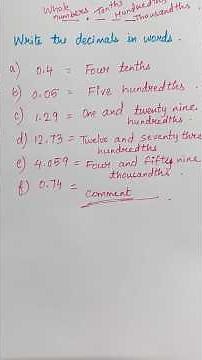 Whole
numbers . Tenths Hundredths
Thousandths .
Write the decimals in words .
a) 0.4 = Four tenths
b) 0.05 = Five hundredths .
c) 1.29 = One and twenty nine
hundredths .
d) 12.73 = Twelve and seventy three
hundredths
e) 4.059 = Four and fifty nine
thousandths .
f) 0.74 =
comment